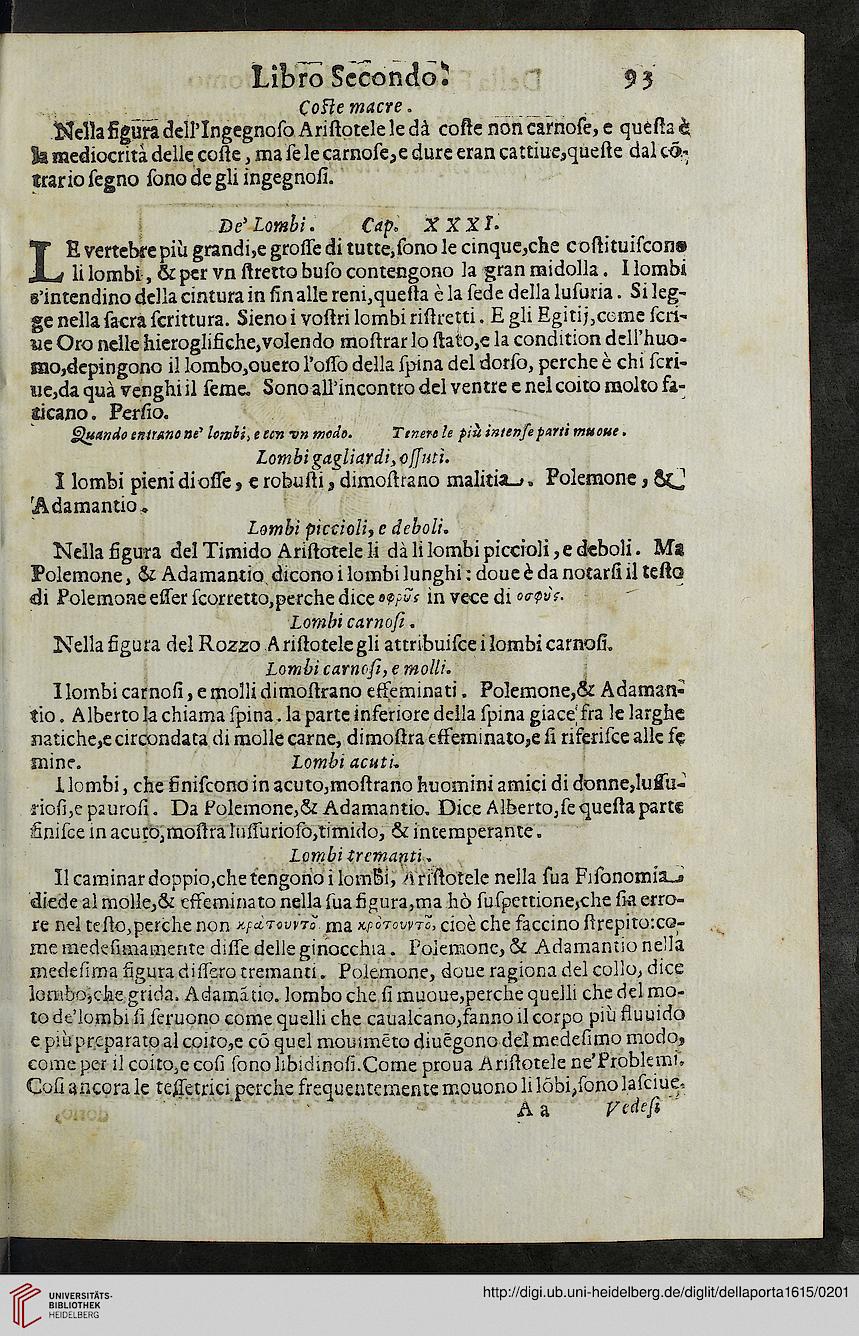 Libro Secondo. 93
Coste macre.
Nella figura dell'Ingegnoso Aristotele le dà coste non carnose, e questa è
la mediocrità delle coste, ma se le carnose, e dure eran cattiue, queste dal cõ-
trario segno sono de gli ingegnosi.
De' Lombi. Cap. XXXI.
LE vertebre più grandi, e grosse di tutte, sono le cinque, che costituiscono
li lombi, & per vn stretto buso contengono la gran midolla. I lombi
s'intendino della cintura in fin alle reni, questa è la sede della lusuria. Si leg-
ge nella sacra scrittura. Sieno i vostri lombi ristretti. E gli Egitij, come scri-
ue Oro nelle hieroglifiche, volendo mostrar lo stato, e la condition dell'huo-
mo, depingono il lombo, ouero l'osso della spina del dorso, perche è chi scri-
ue, da quà venghi il seme. Sono all'incontro del ventre e nel coito molto fa-
ticano. Persio.
Quando entrano ne' lombi, e con vn modo. Tenere le più intense parti muoue.
Lombi gagliardi, ossuti.
I lombi pieni di osse, e robusti, dimostrano malitia. Polemone, &
Adamantio.
Lombi piccioli, e deboli.
Nella figura del Timido Aristotele li dà li lombi piccioli, e deboli. Ma
Polemone, & Adamantio dicono i lombi lunghi: doue è da notarsi il testo
di Polemone esser scorretto, perche dice οφρῦς in vece di οσφὺς.
Lombi carnosi.
Nella figura del Rozzo Aristotele gli attribuisce i lombi carnosi.
Lombi carnosi, e molli.
I lombi carnosi, e molli dimostrano effeminati. Polemone, & Adaman-
tio. Alberto la chiama spina. la parte inferiore della spina giace fra le larghe
natiche, e circondata di molle carne, dimostra effeminato, e si riferisce alle fe
mine. Lombi acuti.
I lombi, che finiscono in acuto, mostrano huomini amici di donne, lussu-
riosi, e paurosi. Da Polemone, & Adamantio. Dice Alberto, se questa parte
finisce in acuto, mostra lussurioso, timido, & intemperante.
Lombi tremanti.
Il caminar doppio, che tengono i lombi, Aristotele nella sua Fisonomia
diede al molle, & effeminato nella sua figura, ma hò suspettione, che sia erro-
re nel testo, perche non κρατουντο ma κροτουντο, cioè che faccino strepito: co-
me medesimamente disse delle ginocchia. Polemone, & Adamantio nella
medesima figura dissero tremanti. Polemone, doue ragiona del collo, dice
lombo, che grida. Adamãtio. lombo che si muoue, perche quelli che del mo-
to de' lombi si seruono come quelli che caualcano, fanno il corpo più fluuido
e più preparato al coito, e cõ quel mouimẽto diuẽgono del medesimo modo,
come per il coito, e cosi sono libidinosi. Come proua Aristotele ne' Problemi.
Cosi ancora le tessetrici perche frequentemente mouono li lõbi, sono lasciue.
A a Vedesi
UNIVERSITÄTS-
BIBLIOTHEK
HEIDELBERG
http://digi.ub.uni-heidelberg.de/diglit/dellaporta1615/0201